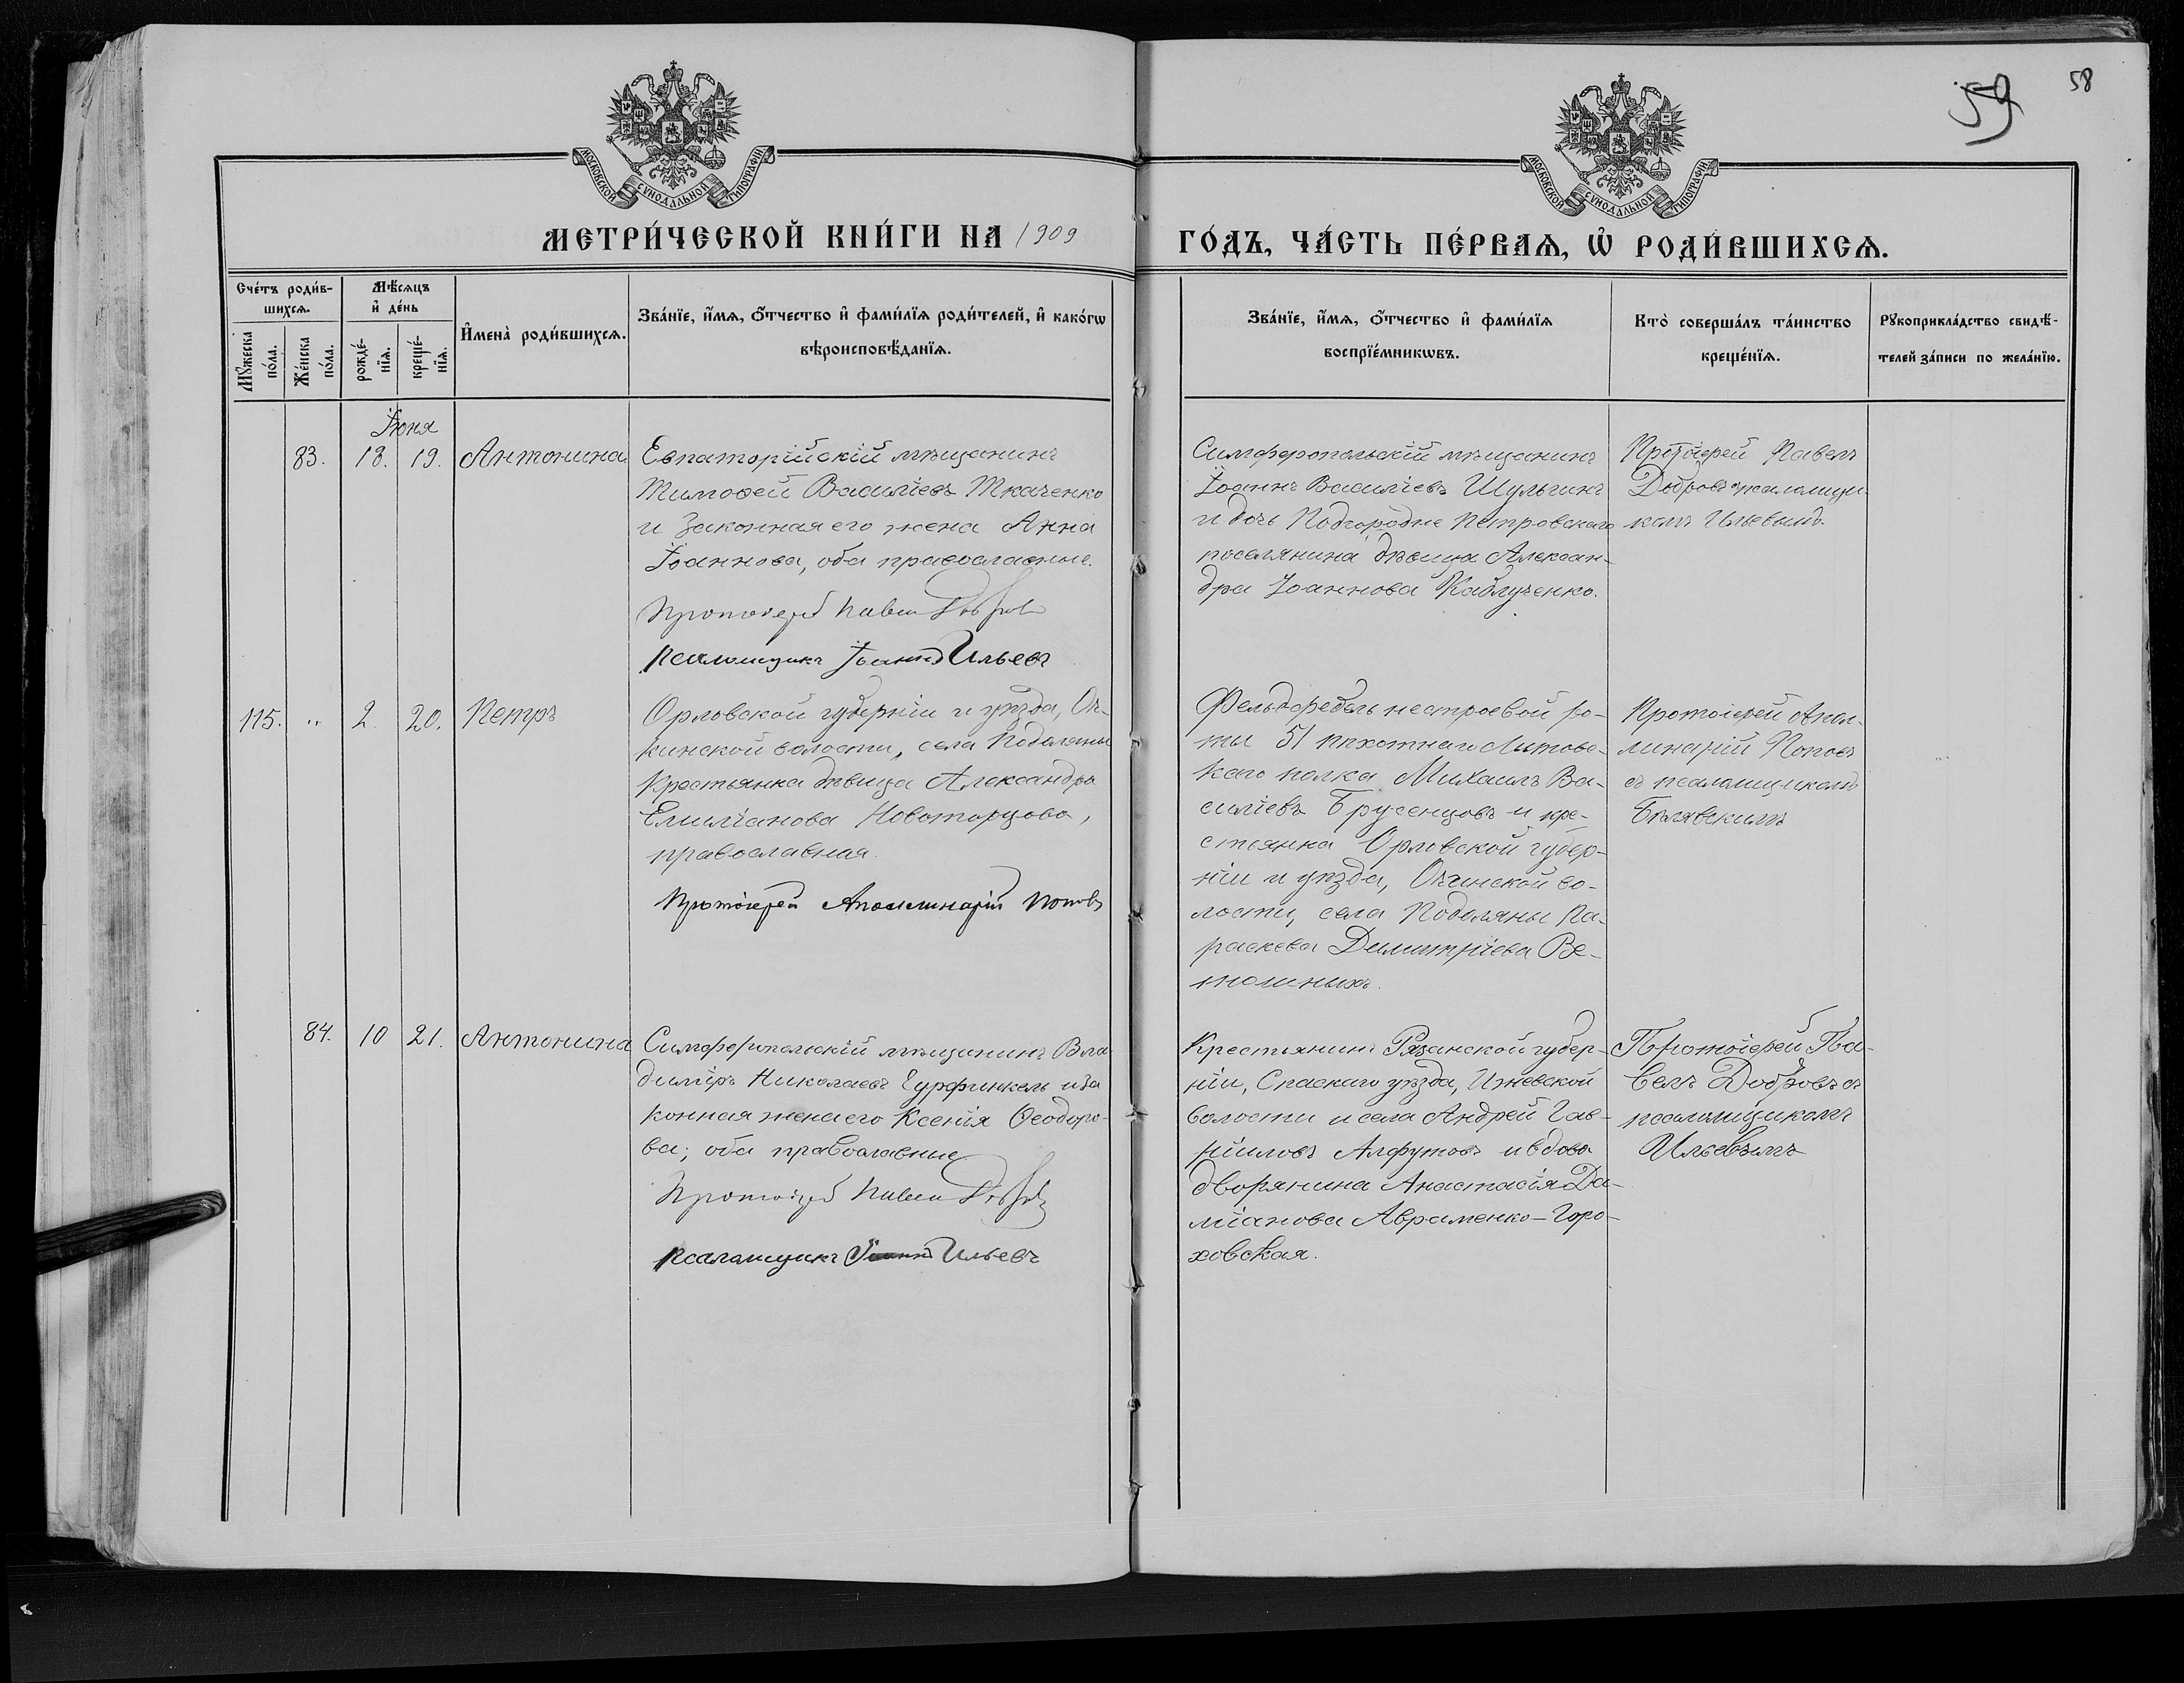 59
58
МОСКОВСКОЙ СѴНОДАЛЬНОЙ ТИПОГРАФІИ
МОСКОВСКОЙ СѴНОДАЛЬНОЙ ТИПОГРАФІИ
МЕТРИ́ЧЕСКОЙ КНИ́ГИ НА 1909
ГО́ДЪ, ЧА́СТЬ ПЕ́РВАѦ, Ѡ҆ РОДИ́ВШИХСѦ.
Сче́тъ роди́в-
шихсѧ.
Мꙋ́жеска
по́ла.
Же́нска
по́ла.
Мѣ́сѧцъ
и҆ де́нь
рожде́-
нїѧ.
креще́-
нїѧ.
И҆мена̀ роди́вшихсѧ.
Зва́нїе, и҆́мѧ, ѻ҆́тчество и҆ фами́лїѧ роди́телей, и҆ како́гѡ
вѣроисповѣ́данїѧ.
Зва́нїе, и҆́мѧ, ѻ҆́тчество и҆ фами́лїѧ
воспрїе́мникѡвъ.
Кто̀ соверша́лъ та́инство
креще́нїѧ.
Рꙋкоприкла́дство свидѣ́-
телей за́писи по жела́нїю.
Іюня
83. 18. 19. Антонина
Евпаторійскій мѣщанинъ
Тимоѳей Василіевъ Ткаченко
и законная его жена Анна
Іоаннова, оба православные.
Протоіерей Павелъ Добровъ
Псаломщикъ Іоаннъ Ильевъ
Симферопольскій мѣщанинъ
Іоаннъ Василіевъ Шульгинъ
и дочь Подгородне Петровскаго
поселянина дѣвица Алексан-
дра Іоаннова Каблученко.
Протоіерей Павелъ
Добровъ псаломщи-
комъ Ильевымъ.
115. " 2. 20. Петръ
Орловской губерніи и уѣзда, Оч-
кинской волости, села Подоляны
крестьянка дѣвица Александра
Емиліанова Новоторцова,
православная.
Протоіерей Аполлинарій Поповъ
Фельдфебель нестроевой ро-
ты 51 пѣхотнаго Литовс-
каго полка Михаилъ Ва-
силіевъ Брусенцовъ и кре-
стьянка Орловской губер-
ніи и уѣзда, во-
лости, села Подоляны Па-
раскева Димитріева Ве-
Протоіерей Апол-
линарій Поповъ
съ псаломщикомъ
Бѣлявскимъ
84. 10 21. Антонина
Симферопольскій мѣщанинъ Вла-
диміръ Николаевъ Гурфинкель и за
конная жена его Ксенія Ѳеодоро-
ва; оба православные
Протоіерей Павелъ Добровъ
Псаломщикъ Іоаннъ Ильевъ
Крестьянинъ Рязанской губер-
ніи, Спаскаго уѣзда, Ижевской
волости и села Андрей Гав-
ріиловъ Алфутовъ и вдова
дворянина Анастасія Да-
міанова Авраменко-Горо-
ховская.
Протоіерей Па-
велъ Добровъ съ
псаломщикомъ
Ильевымъ